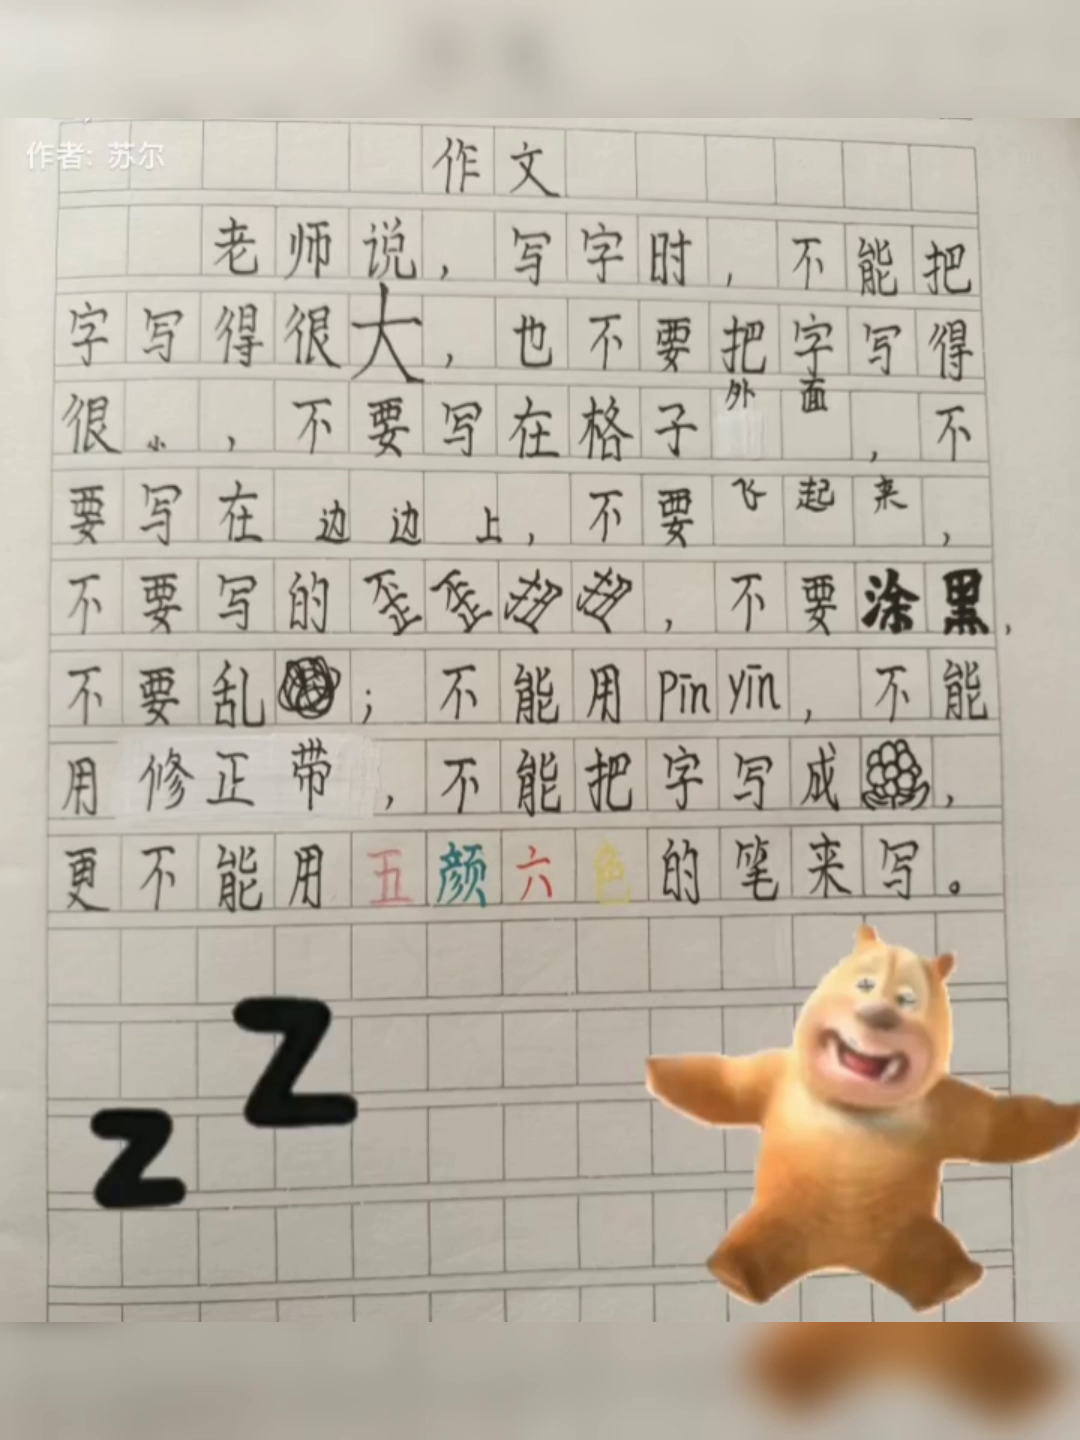 作者: 苏尔
作文
老师说，写字时，不能把
字写得很大，也不要把字写得
很小，不要写在格子外面，不
要写在边边上，不要飞起来，
不要写的歪歪扭扭，不要涂黑，
不要乱；不能用pīn yīn，不能
用修正带，不能把字写成，
更不能用五颜六色的笔来写。
z
Z